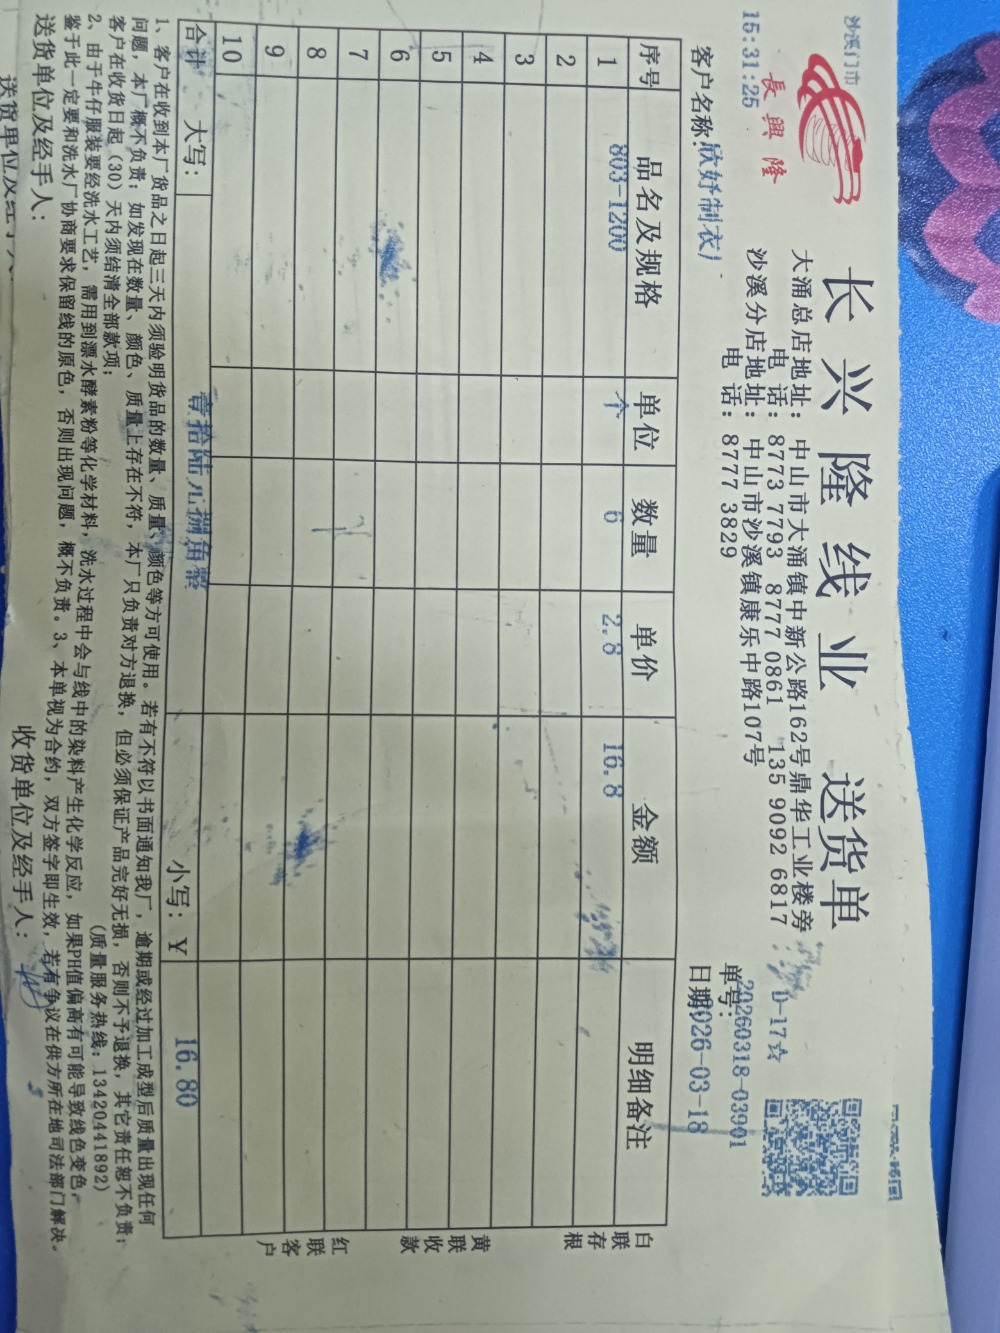 沙溪门市
15:31:25
長興隆
长兴隆线业 送货单
大涌总店地址: 中山市大涌镇中新公路162号鼎华工业楼旁
电 话: 8773 7793 8777 0861 135 9092 6817
D-17☆
沙溪分店地址: 中山市沙溪镇康乐中路107号
电 话: 8777 3829
单号: 20260318-03901
客户名称: 欣妤制衣厂
日期 2026-03-18
序号 品名及规格 单位 数量 单价 金额 明细备注
1 803-1200 个 6 2.8 16.8
2
3
4
5
6
7
8
9
10
合计 大写: 壹拾陆元捌角整 小写: Y 16.80
白联存根
黄联收款
红联客户
1、客户在收到本厂货品之日起三天内须验明货品的数量、质量、颜色等方可使用。若有不符以书面通知我厂，逾期或经过加工成型后质量出现任何
问题，本厂概不负责；如发现在数量、颜色、质量上存在不符，本厂只负责对方退换，但必须保证产品完好无损，否则不予退换，其它责任恕不负责；
客户在收货日起（30）天内须结清全部款项； (质量服务热线: 13420441892)
2、由于牛仔服装要经洗水工艺，需用到漂水酵素粉等化学材料，洗水过程中会与线中的染料产生化学反应，如果PH值偏高有可能导致线色变色，
鉴于此一定要和洗水厂协商要求保留线的原色，否则出现问题，概不负责。3、本单视为合约，双方签字即生效，若有争议在供方所在地司法部门解决。
送货单位及经手人: 收货单位及经手人:
送货单位及经手人: